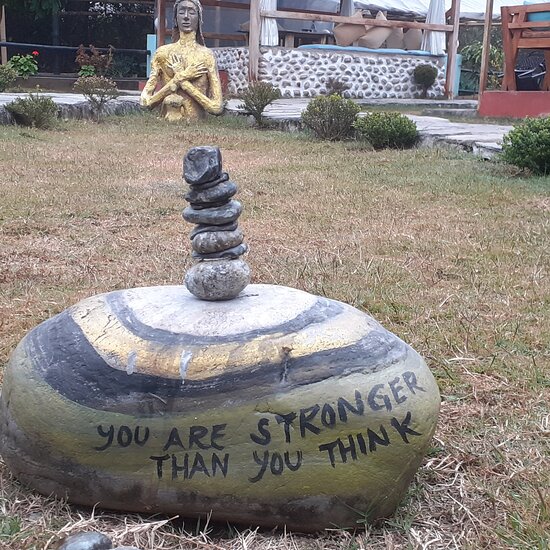 YOU ARE STRONGER
THAN YOU THINK